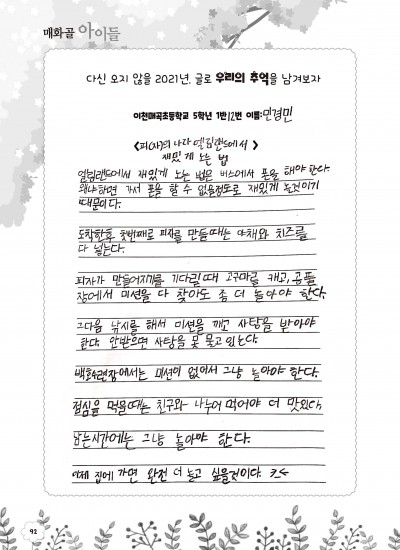 매화골 아이들
다신 오지 않을 2021년, 글로 우리의 추억을 남겨보자
이천매곡초등학교 5학년 1반 12번 이름: 민경민
<피(자)의 나라 엘림랜드에서>
재밌게 노는 법
엘림랜드에서 재밌게 노는 법은 버스에서 폰을 해야 한다.
왜냐하면 가서 폰을 할 수 없을정도로 재밌게 놀것이기
때문이다.
도착한후 첫번째로 피자를 만들때는 야채와 치즈를
다 넣는다.
피자가 만들어지기를 기다릴때 고구마를 캐고,
장에서 미션을 다 찾아도 좀 더 놀아야 한다.
그다음 낚시를 해서 미션을 깨고 사탕을 받아야
한다. 안받으면 사탕을 못 물고 있는다.
에서는 미션이 없어서 그냥 놀아야 한다.
점심을 먹을때는 친구와 나누어 먹어야 더 맛있다.
남는시간에는 그냥 놀아야 한다.
이제 집에 가면 완전 더 놀고 싶을것이다. ㅋㅋ
92